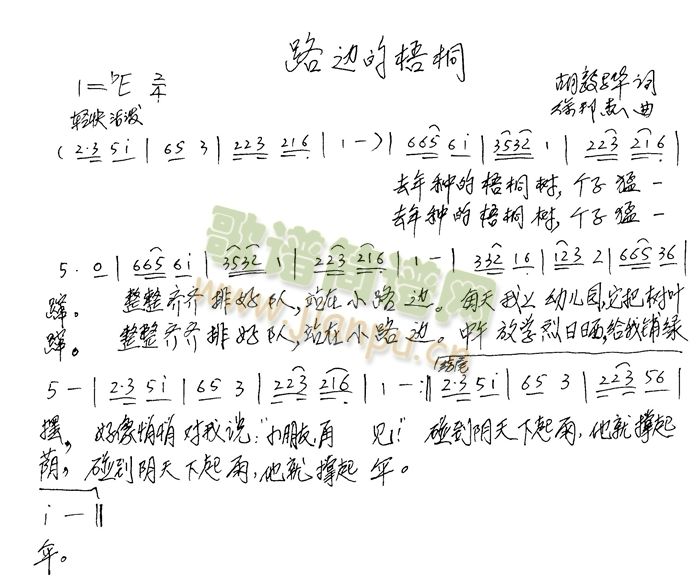 路边的梧桐
1=♭E 2/4
胡敦骅 词
轻快活泼
徐邦杰 曲
(2·3 5i | 65 3 | 223 216 | 1 -) | 665 6i | 3532 1 | 223 216 |
去年种的梧桐树,个子猛一
去年种的梧桐树,个子猛一
5· 0 | 665 6i | 3532 1 | 223 216 | 1 - | 332 16 | 123 2 | 665 36 |
蹿。 整整齐齐排好队,站在小路边。每天我上幼儿园,它把树叶
蹿。 整整齐齐排好队,站在小路边。中午放学烈日晒,给我铺绿
结尾
5 - | 2·3 5i | 65 3 | 223 216 | 1 - :|| 2·3 5i | 65 3 | 223 56 |
摆, 好像悄悄对我说:“小朋友再见!” 碰到阴天下起雨,他就撑起
荫, 碰到阴天下起雨,他就撑起伞。
i - ||
伞。
歌谱简谱网
www.jianpu.cn